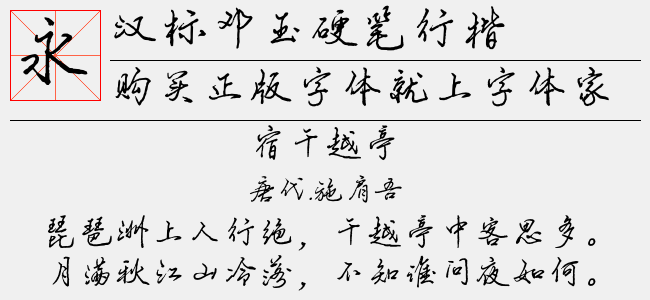 永
汉标邓玉硬笔行楷
购买正版字体就上字体家
宿干越亭
唐代.施肩吾
琵琶洲上人行绝，干越亭中客思多。
月满秋江山冷落，不知谁问夜如何。